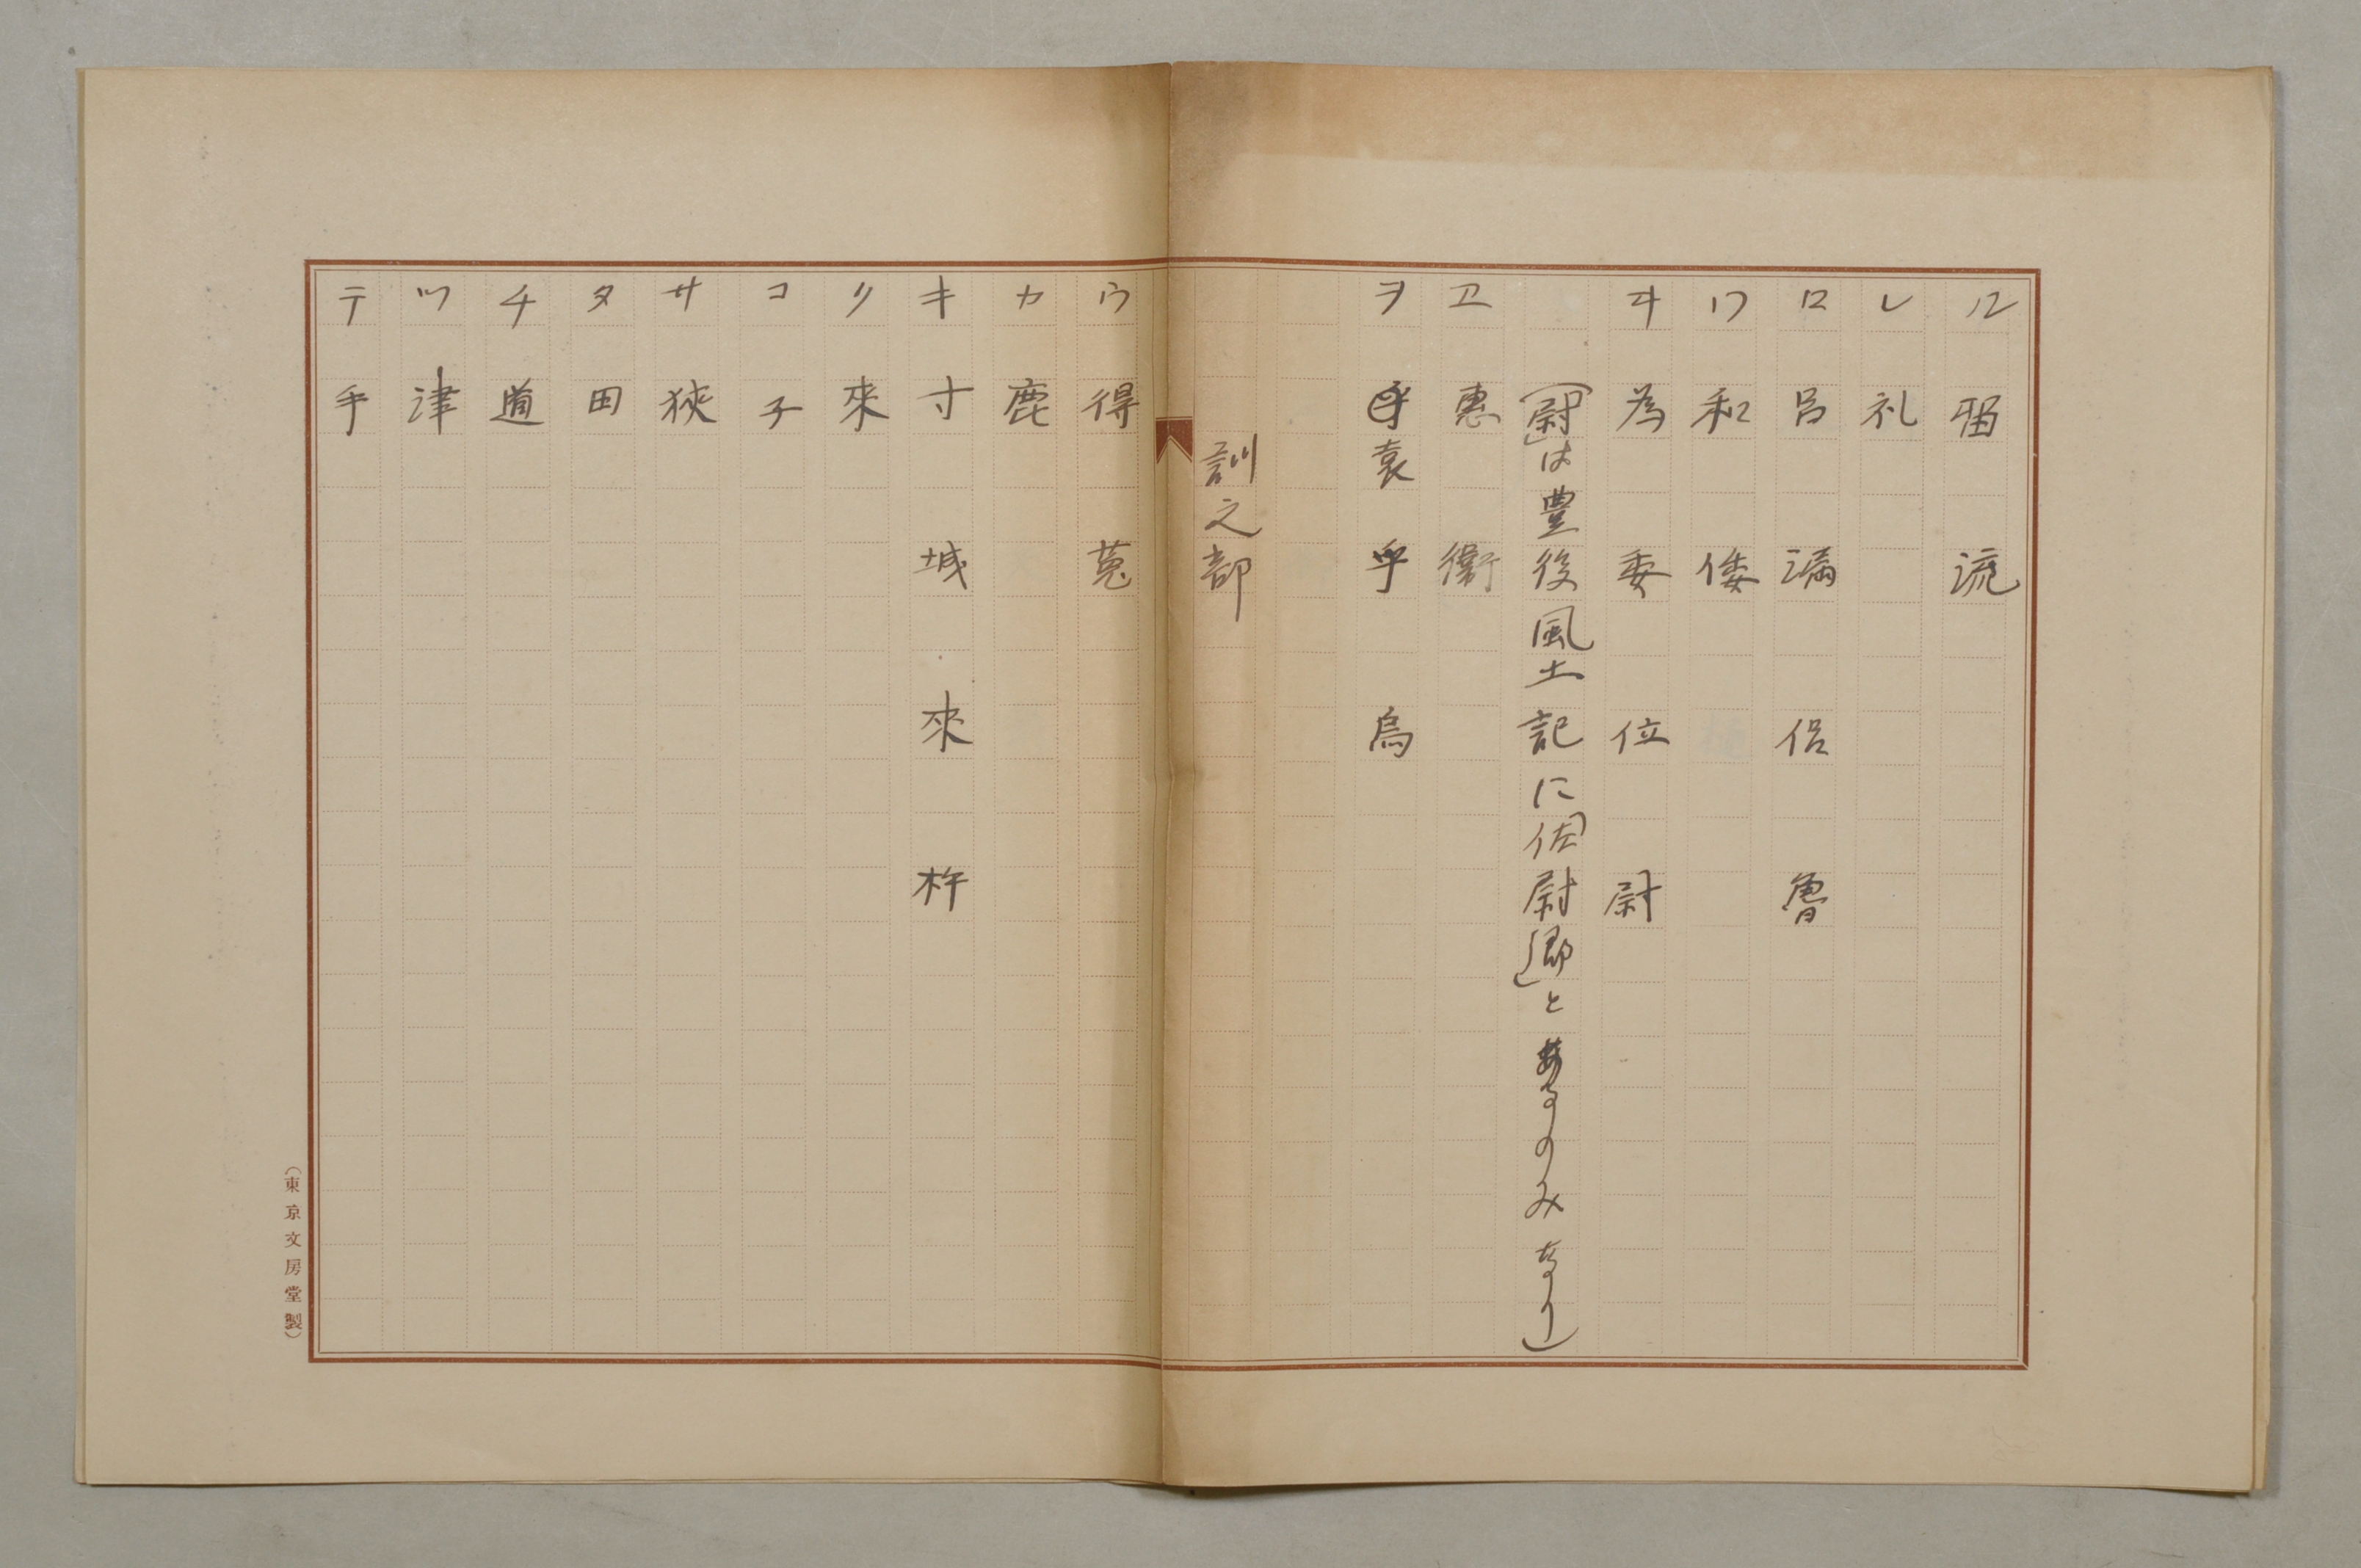 ル 留 流
レ 礼
ロ 呂 漏 侶 魯
ワ 和 倭
ヰ 為 委 位 尉
(「尉」は豊後風土記に「佐尉郷」とあるのみなり)
ヱ 惠 衞
ヲ 袁 乎 烏
訓之部
ウ 得 菟
カ 鹿
キ 寸 城 來 杵
ク 來
コ 子
サ 狹
タ 田
チ 道
ツ 津
テ 手
(東京文房堂製)